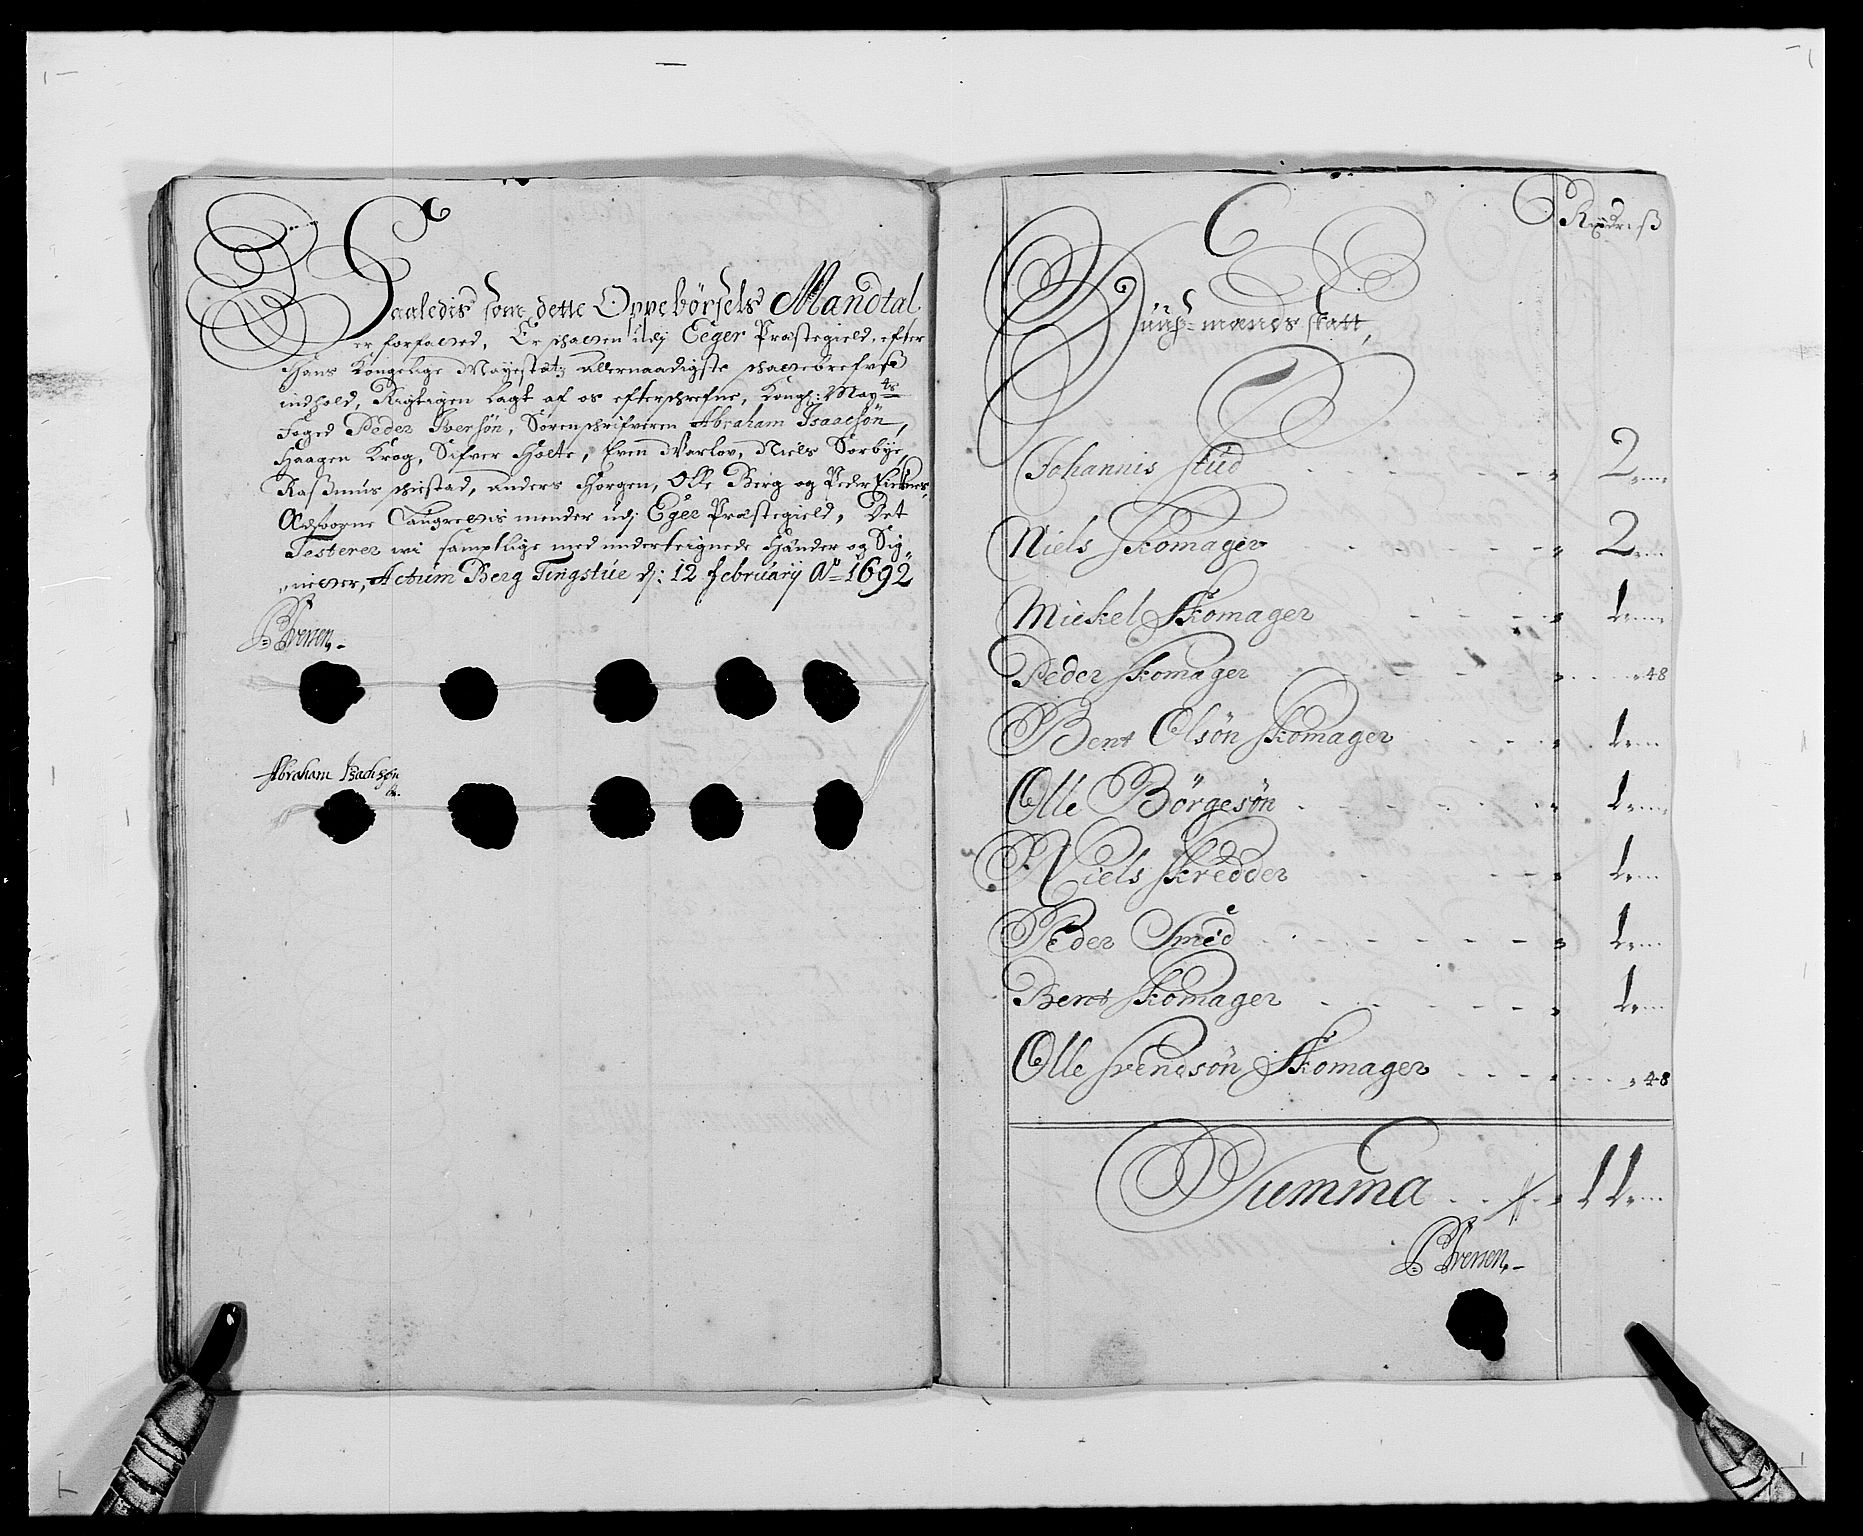 Saaledis som dette Oppebörsels Mandtal
er forfatted, Er skatten udj Eeger Præstegield, efter
Hans Kongelige Mayestætz allernaadigste skattebrefvß
indhold, Rigtigen lagt af os efterschrefne, Kongl: Mayts
Foged Peder Iversön, Sorenschrifveren Abraham Isaachsön,
Haagen Krog, Sifver Holte, Even Varlov, Niels Sörbye,
Raßmus anders Horgen, Olle Berg og Peder
Laugrettis mender udj Eger Præstegield, Det
Testerer wi samptlige med underteignede Händer og Sig-
netter, Actum Berg Tingstue dj: 12 Februarij Ao 1692
P Iversen,-
Abraham Isachsøn
Rixdr: ß
Huuß-mands skatt,
Johannis stud - - - - - „ 2 „
Niels Skomager - - - - „ 2 „
Mickel Skomager - - - „ 1 „
Peder Skomager - - - „ „ 48
Bent Olsön Skomager - - „ 1 „
Olle Börgesön - - - - „ 1 „
Niels Skredder - - - „ 1 „
Peder Smed - - - - - „ 1 „
Bent Skomager - - - - „ 1 „
Olle Svendsön Skomager - - - „ 48
Summa - - „ 11 „
P Iversen,-